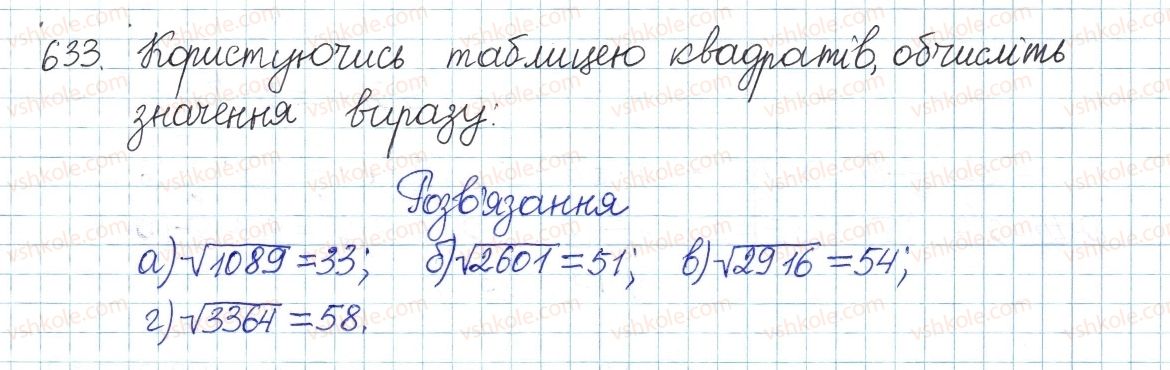 633. Користуючись таблицею квадратів, обчисліть
значення виразу:
Розв'язання
а) √1089 = 33; б) √2601 = 51; в) √2916 = 54;
г) √3364 = 58.